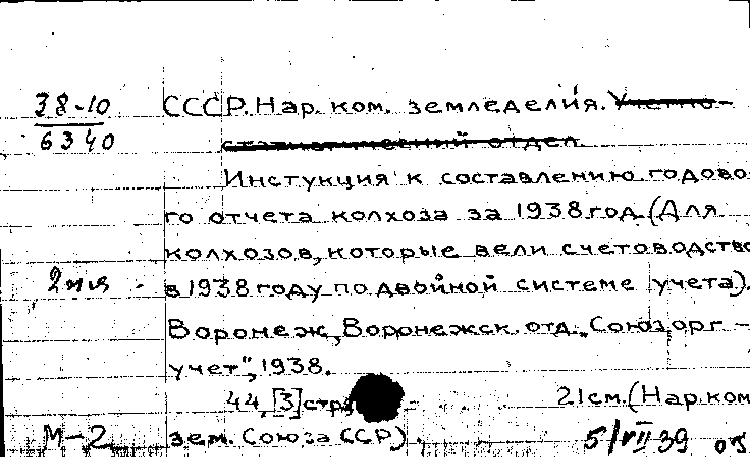 38-10
6340
СССР. Нар. ком. земледелия. Учетно-
статистический отдел.
Инстукция к составлению годово
го отчета колхоза за 1938 год (Для
колхозов, которые вели счетоводство
2 экз -
в 1938 году по двойной системе учета).
Воронеж, Воронежск. отд. „Союзорг-
учет", 1938.
44, [3] стр. 21 см. (Нар. ком
зем. Союза ССР)
М-2
5/VII 39